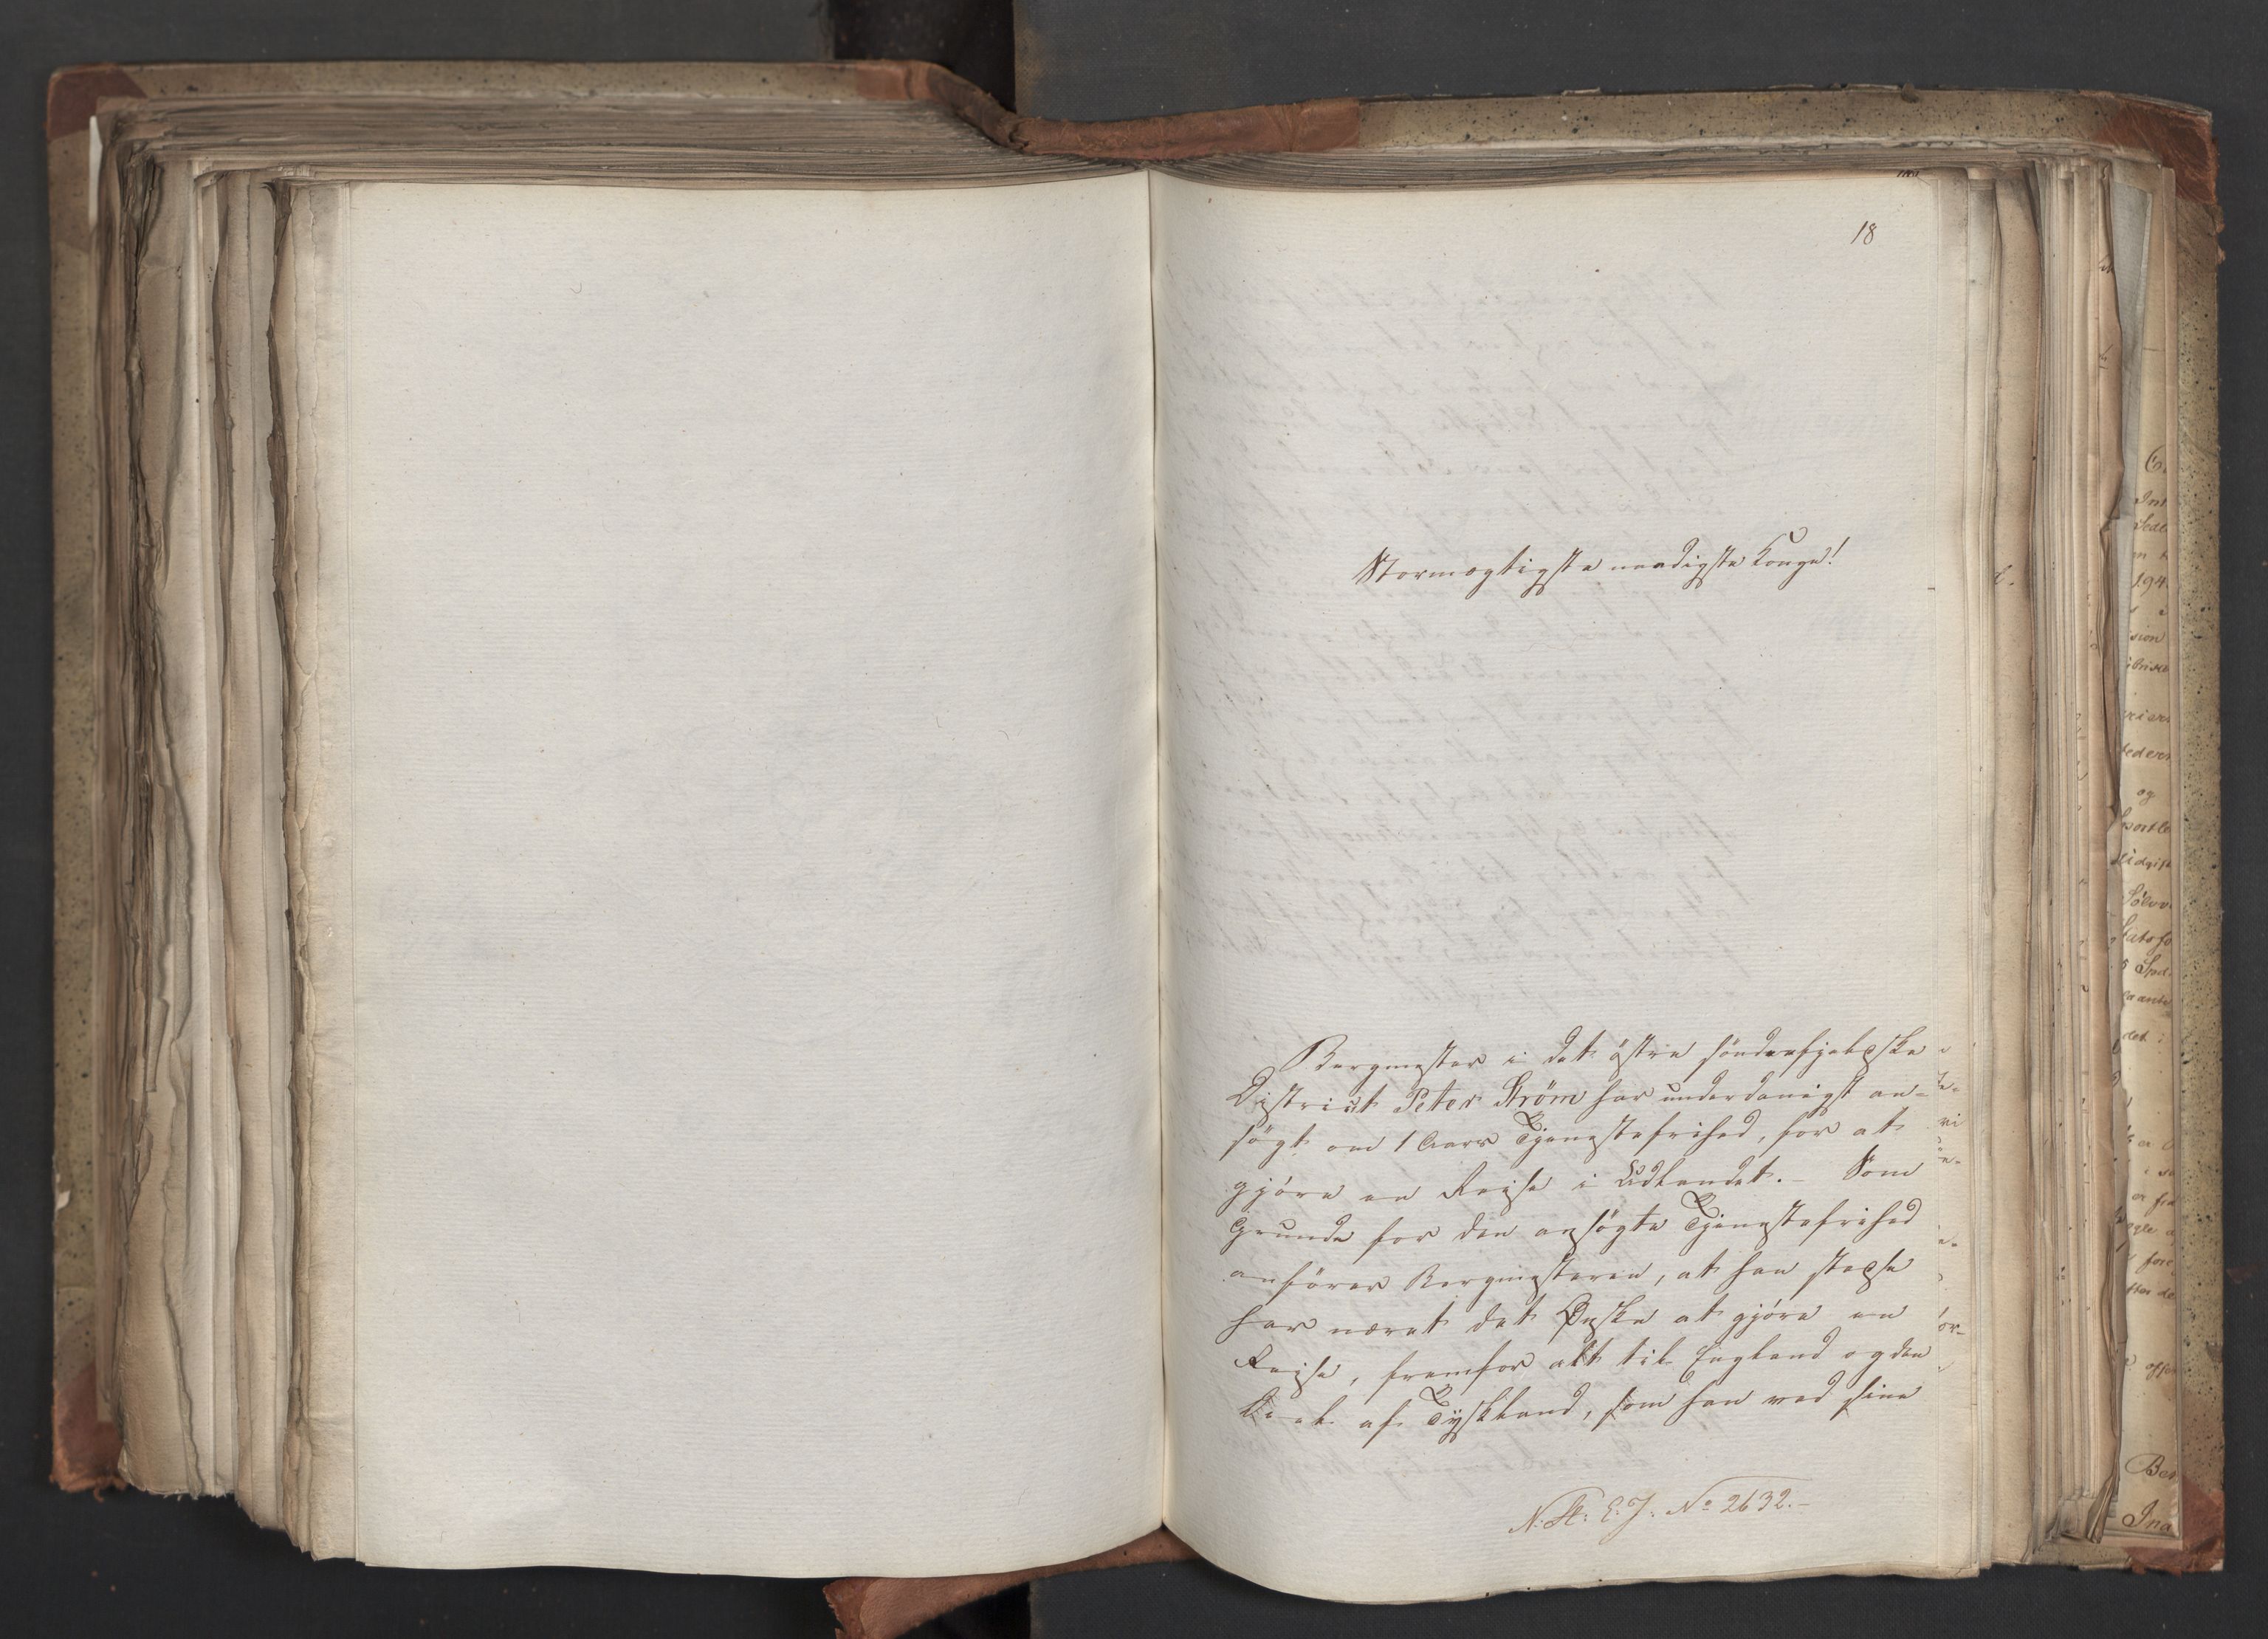 18
Stormægtigste naadigste Konge!
Bergmester i det østre søndenfjeldske
District Peter Strøm har underdanigst an-
søgt om 1 Aars Tjenestefrihed, for at
gjøre en Reise i Udlandet. – Som
Grunde for den ansøgte Tjenestefrihed
anfører Bergmesteren, at han stedse
har næret det Ønske at gjøre en
Reise, fremfor alt til England og den
Deel af Tyskland, som han ved sine
N. St: E. J. No 2632. –